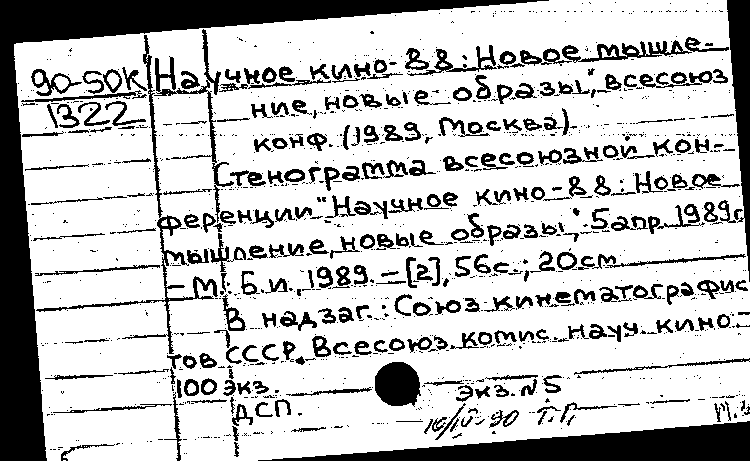 90-50К "Научное кино-88: Новое мышле-
1322
ние, новые образы", всесоюз
конф. (1989, Москва).
Стенограмма всесоюзной кон-
ференции "Научное кино-88: Новое
мышление, новые образы", 5 апр. 1989г
- М.: Б.и., 1989. - [2], 56с.; 20см
В надзаг.: Союз кинематографис
тов СССР. Всесоюз. комис. науч. кино.-
100 экз. Экз. №5
ДСП.